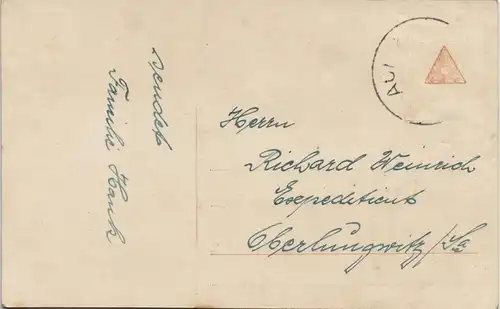 sendet
Familie Hank
AU
Herrn
Richard Weinrich
Expeditient
Oberlungwitz/Sa